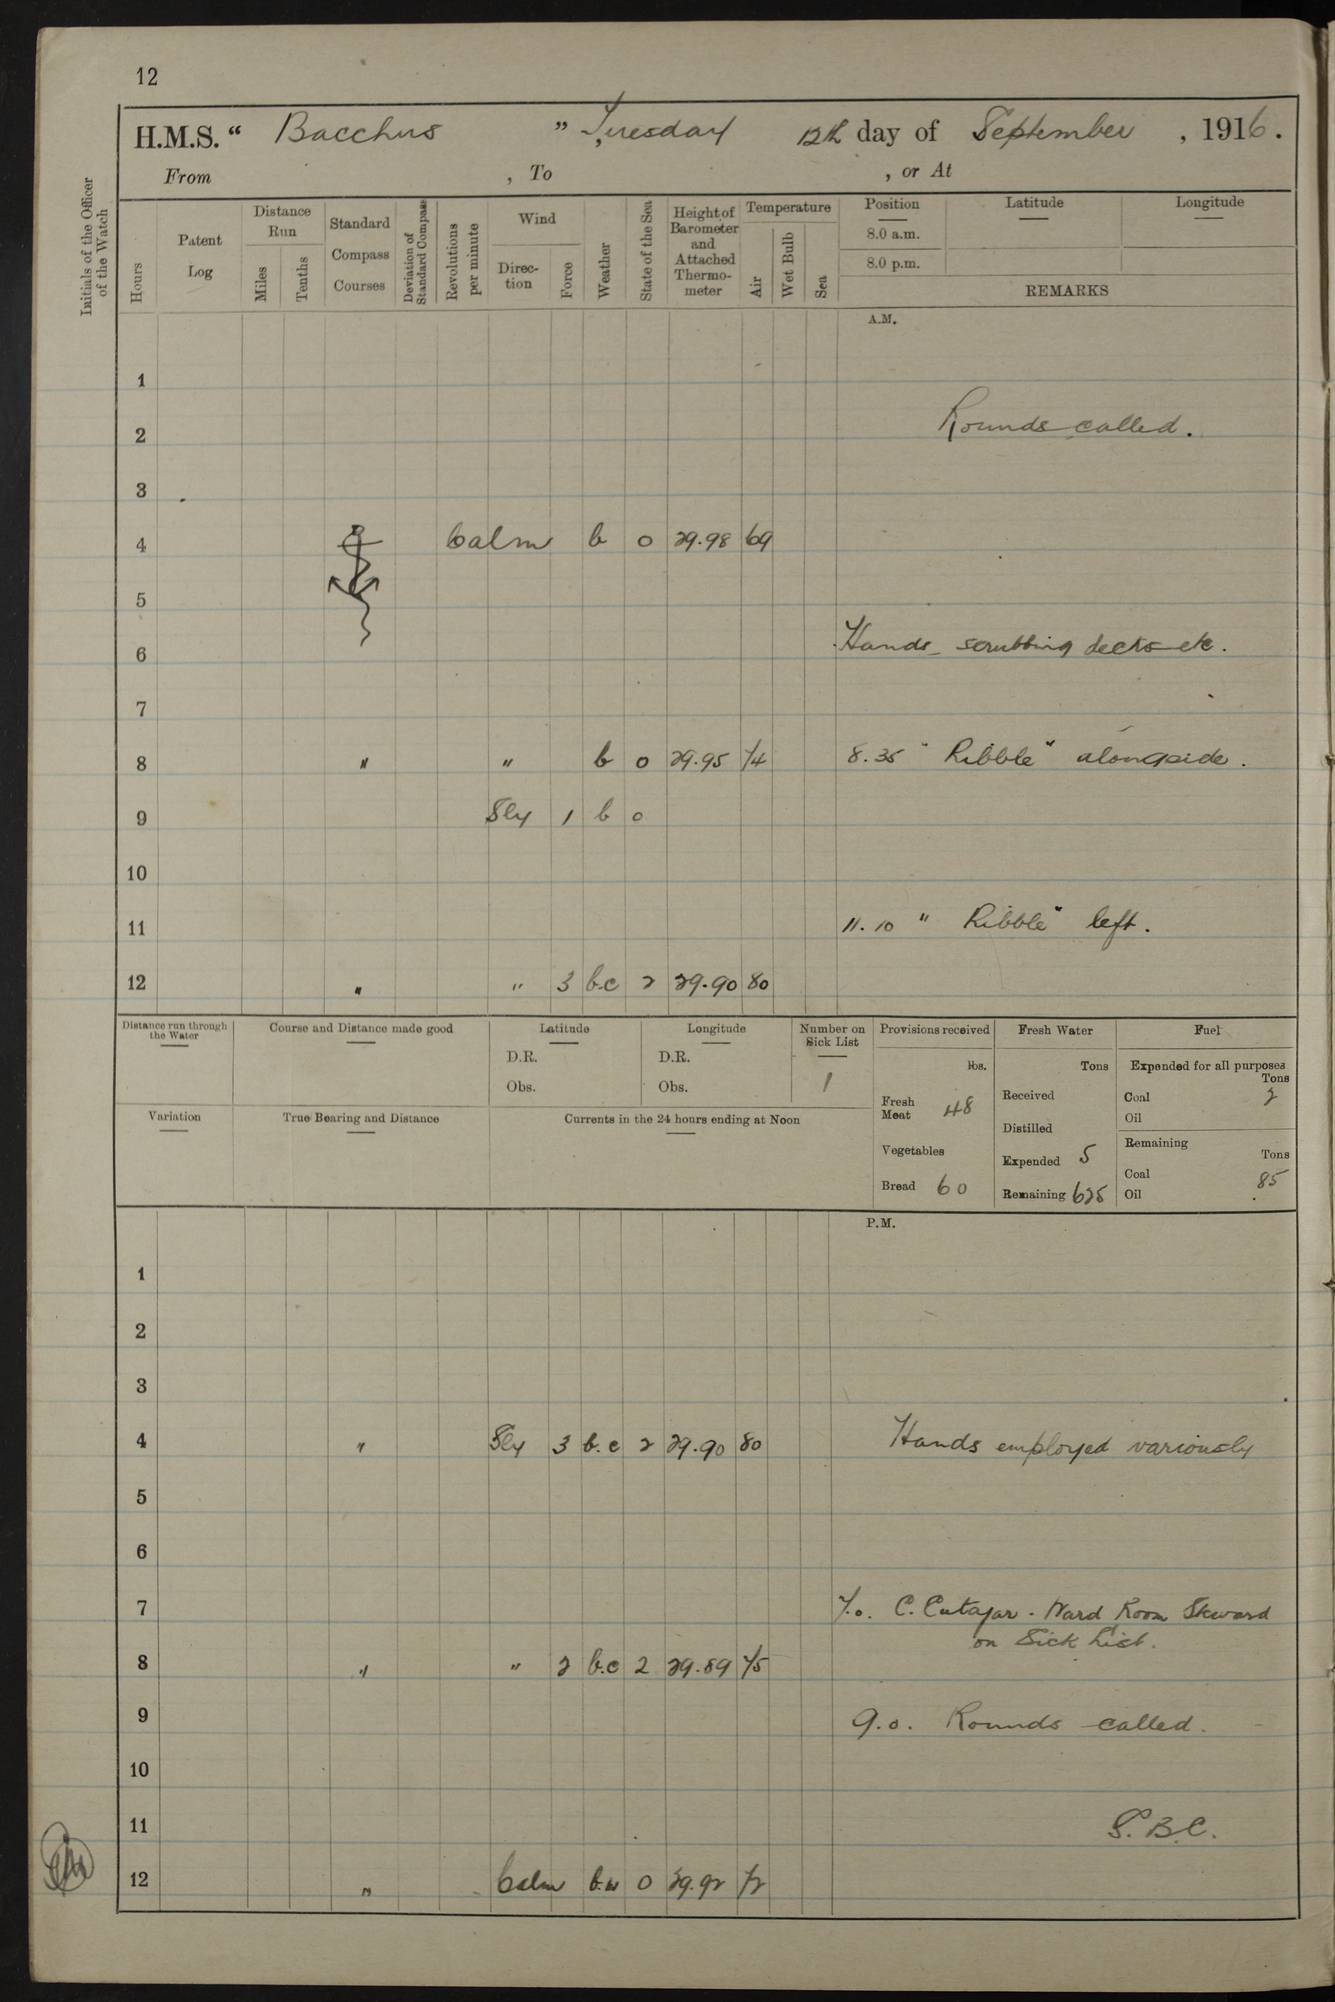 12
H.M.S. " Bacchus " Tuesday 12th day of September , 1916.
From , To , or At
Initials of the Officer of the Watch
Hours
Patent Log
Distance Run
Miles
Tenths
Standard Compass Courses
Deviation of Standard Compass
Revolutions per minute
Wind
Direc-tion
Force
Weather
State of the Sea
Height of Barometer and Attached Thermo-meter
Temperature
Air
Wet Bulb
Sea
Position Latitude Longitude
8.0 a.m.
8.0 p.m.
REMARKS
A.M.
1
2 Rounds called.
3
4 Calm b 0 29.98 69
5
6 Hands scrubbing decks etc.
7
8 " " b 0 29.95 74 8.35 "Ribble" alongside.
9 Sly 1 b 0
10
11 11.10 "Ribble" left.
12 " " 3 b.c 2 29.90 80
Distance run through the Water
Course and Distance made good
Latitude
D.R.
Obs.
Longitude
D.R.
Obs.
Number on Sick List
1
Variation
True Bearing and Distance
Currents in the 24 hours ending at Noon
Provisions received
lbs.
Fresh Meat 48
Vegetables
Bread 60
Fresh Water
Tons
Received
Distilled
Expended 5
Remaining 625
Fuel
Expended for all purposes
Tons
Coal 2
Oil
Remaining
Tons
Coal 85
Oil
P.M.
1
2
3
4 " Sly 3 b.c 2 29.90 80 Hands employed variously
5
6
7 7.0. C. Cutajar. Ward Room Steward
on Sick List.
8 " " 2 b.c 2 29.89 75
9 9.0. Rounds called.
10
11 S.B.C.
12 " Calm b.w 0 29.92 72